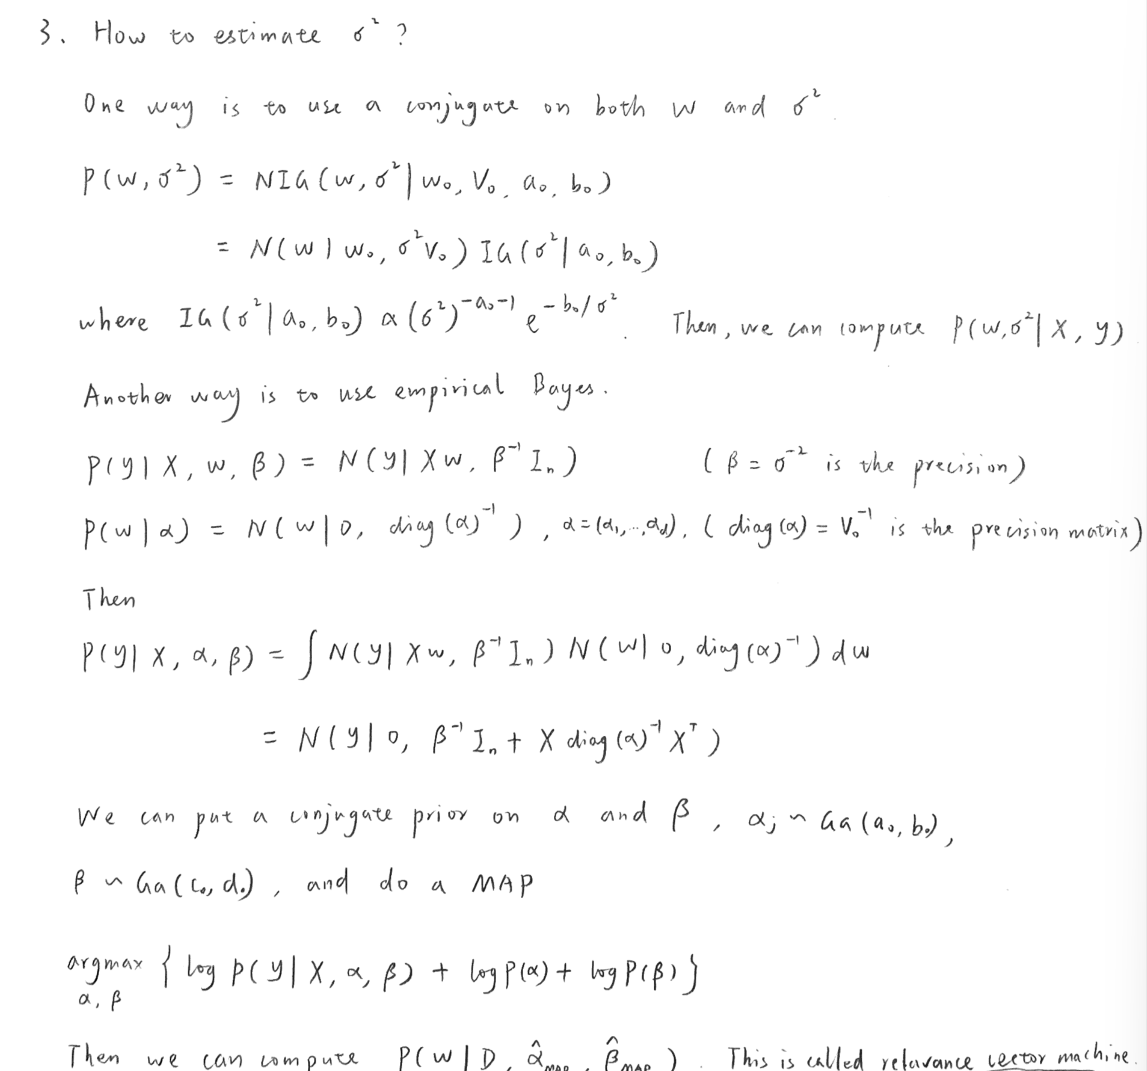 3. How to estimate σ² ?
One way is to use a conjugate on both w and σ²
P(w, σ²) = NIG(w, σ² | w₀, V₀, a₀, b₀)
= N(w | w₀, σ²V₀) IG(σ² | a₀, b₀)
where IG(σ² | a₀, b₀) ∝ (σ²)^{-a₀-1} e^{-b₀/σ²}. Then, we can compute P(w, σ² | X, y)
Another way is to use empirical Bayes.
P(y | X, w, β) = N(y | Xw, β⁻¹ Iₙ) (β = σ⁻² is the precision)
P(w | α) = N(w | 0, diag(α)⁻¹), α = (α₁, ..., α_d), (diag(α) = V₀⁻¹ is the precision matrix)
Then
P(y | X, α, β) = ∫ N(y | Xw, β⁻¹ Iₙ) N(w | 0, diag(α)⁻¹) dw
= N(y | 0, β⁻¹ Iₙ + X diag(α)⁻¹ Xᵀ)
We can put a conjugate prior on α and β, αⱼ ~ Ga(a₀, b₀),
β ~ Ga(c₀, d₀), and do a MAP
argmax { log P(y | X, α, β) + log P(α) + log P(β) }
α, β
Then we can compute P(w | D, α̂_MAP, β̂_MAP). This is called relavance vector machine.